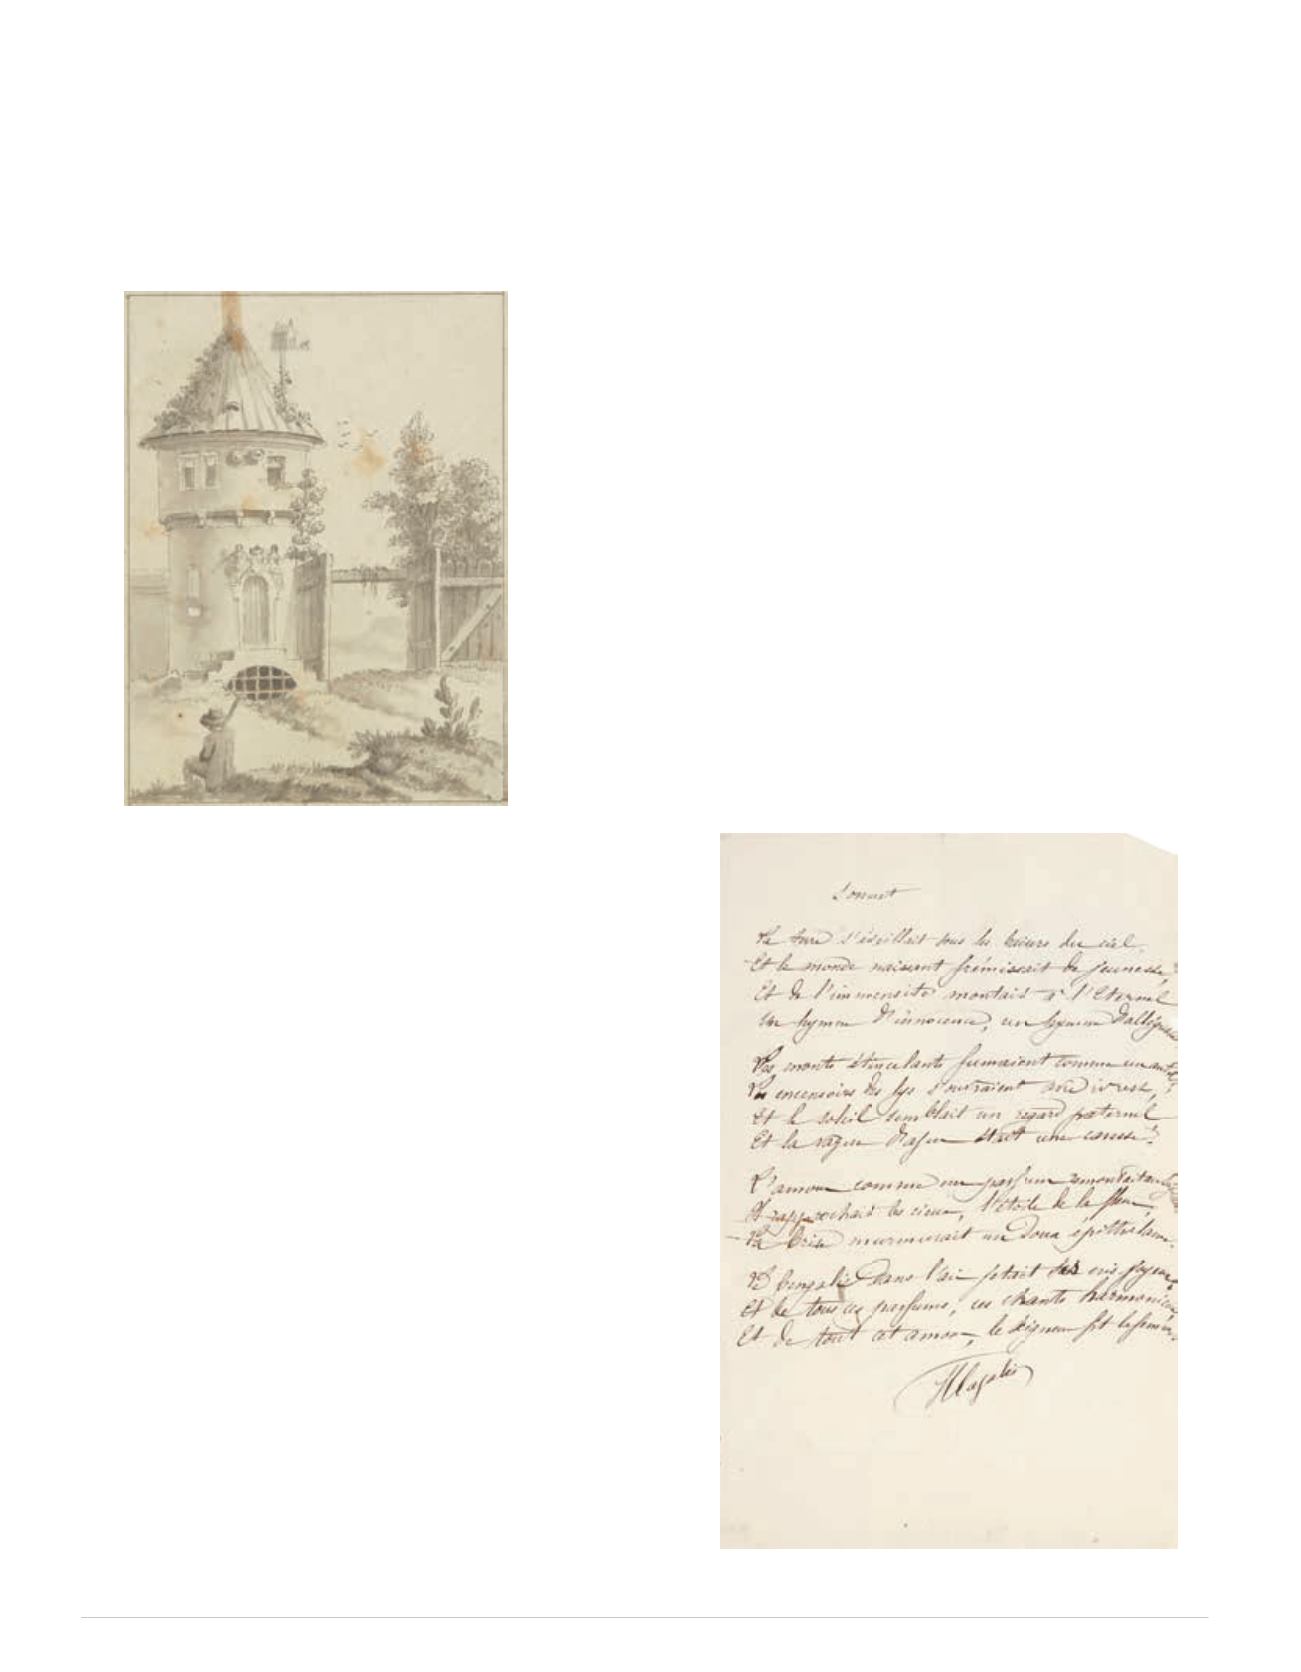 Sonnet
La terre s'éveillait sous les baisers du ciel.
Et le monde naissant frémissait de jeunesse,
Et de l'immensité montait à l'Eternel
Un hymne d'innocence, un hymne d'allégresse
Les monts étincelants fumaient comme un autel
Les encensoirs des lys s'ouvraient avec ivresse,
Et le soleil semblait un regard paternel
Et la vague d'azur était une caresse.
L'amour comme un parfum remontait
Et rapprochait les cieux, l'étoile de la fleur,
La brise murmurait un doux épithalame.
Le bengali dans l'air jetait ses cris joyeux
Et de tous ces parfums, ces chants harmonieux
Et de tout cet amour, le Seigneur fit la femme.